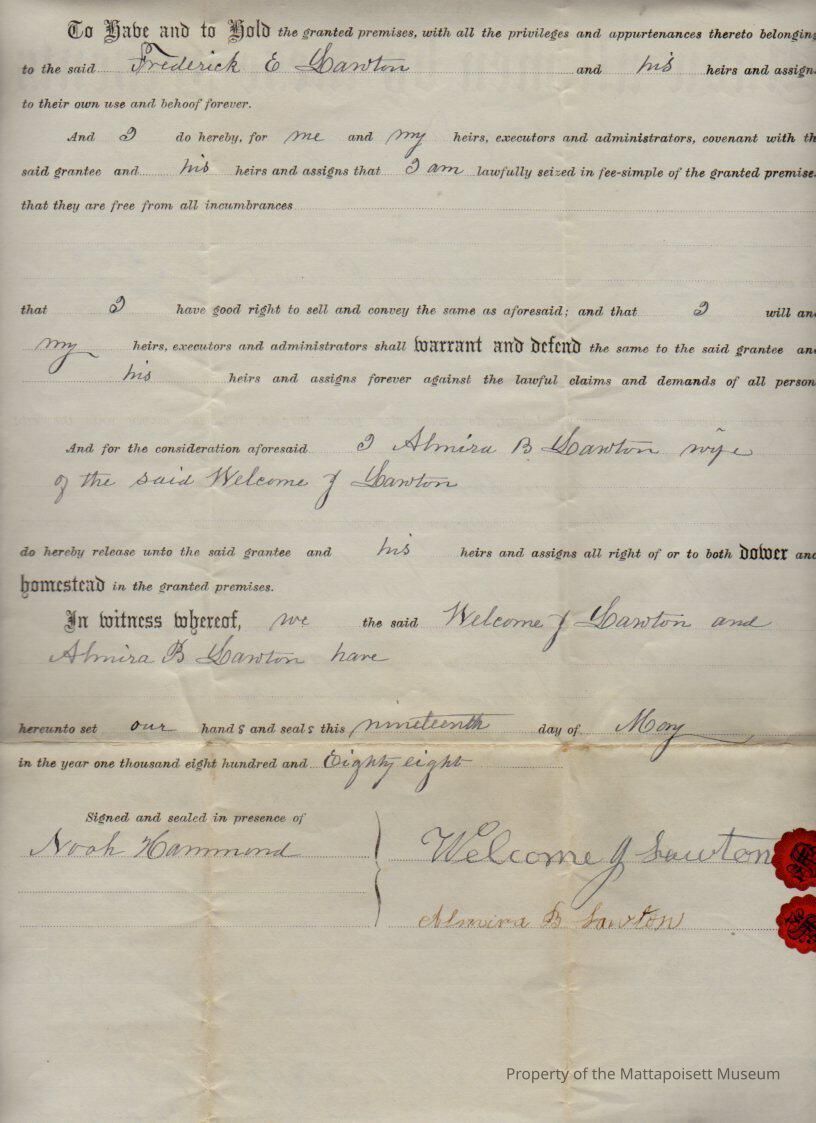 To Have and to Hold the granted premises, with all the privileges and appurtenances thereto belonging
to the said Frederick E Lawton and his heirs and assign
to their own use and behoof forever.
And I do hereby, for me and my heirs, executors and administrators, covenant with th
said grantee and his heirs and assigns that I am lawfully seized in fee-simple of the granted premise
that they are free from all incumbrances
that I have good right to sell and convey the same as aforesaid; and that I will an
my heirs, executors and administrators shall warrant and defend the same to the said grantee an
his heirs and assigns forever against the lawful claims and demands of all person
And for the consideration aforesaid I Almira B Lawton wife
of the said Welcome J Lawton
do hereby release unto the said grantee and his heirs and assigns all right of or to both dower and
homestead in the granted premises.
In witness whereof, we the said Welcome J Lawton and
Almira B Lawton have
hereunto set our hands and seals this nineteenth day of May
in the year one thousand eight hundred and Eighty eight
Signed and sealed in presence of
Noah Hammond Welcome J Lawton
Almira B Lawton
Property of the Mattapoisett Museum